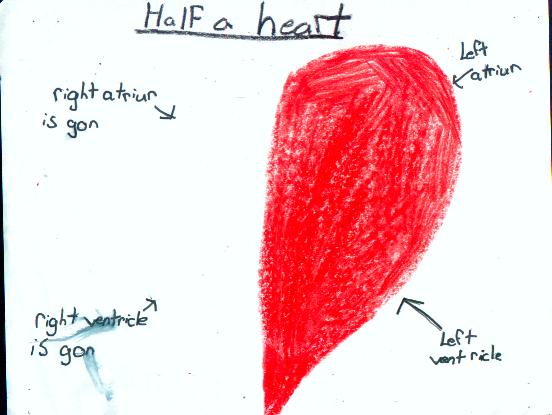 Half a heart
Left
atriun
right atriun
is gon
right ventricle
is gon
Left
ventricle